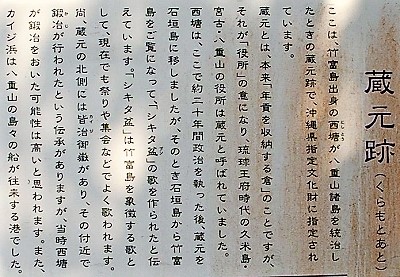 蔵元跡(くらもとあと)
ここは竹富島出身の西塘が八重山諸島を統治し
たときの蔵元跡で、沖縄県指定文化財に指定され
ています。
蔵元とは、本来「年貢を収納する倉」のことですが、
それが「役所」の意になり、琉球王府時代の久米島・
宮古・八重山の役所は蔵元と呼ばれていました。
西塘は、ここで約二十年間政治を執った後、蔵元を
石垣島に移しましたが、そのとき石垣島から竹富
島をご覧になって、「シキタ盆」の歌を作られたと伝
えています。「シキタ盆」は竹富島を象徴する歌と
して、現在でも祭りや集会などでよく歌われます。
尚、蔵元の北側には皆治御嶽があり、その付近で
鍛冶が行われたという伝承がありますが、当時西塘
が鍛冶をおいた可能性は高いと思われます。また、
カイジ浜は八重山の島々の船が往来する港でした。